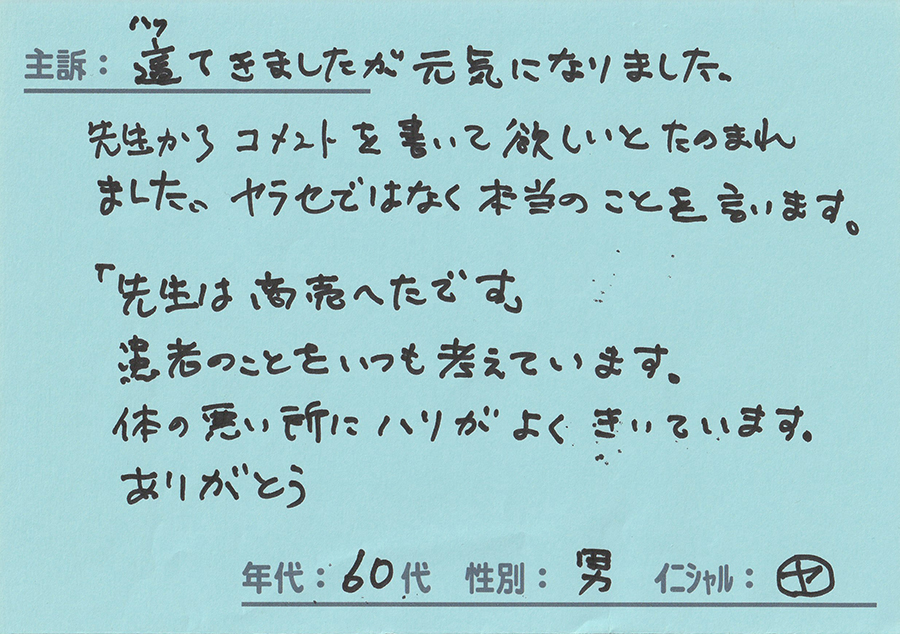 ハツ
主訴： 這てきましたが元気になりました。
先生から コメントを書いて欲しいとたのまれ
ました。ヤラセではなく本当のことを言います。
「先生は商売へたです」
患者のことをいつも考えています。
体の悪い所にハリがよくきいています。
ありがとう
年代：60代 性別：男 イニシャル：ヤ